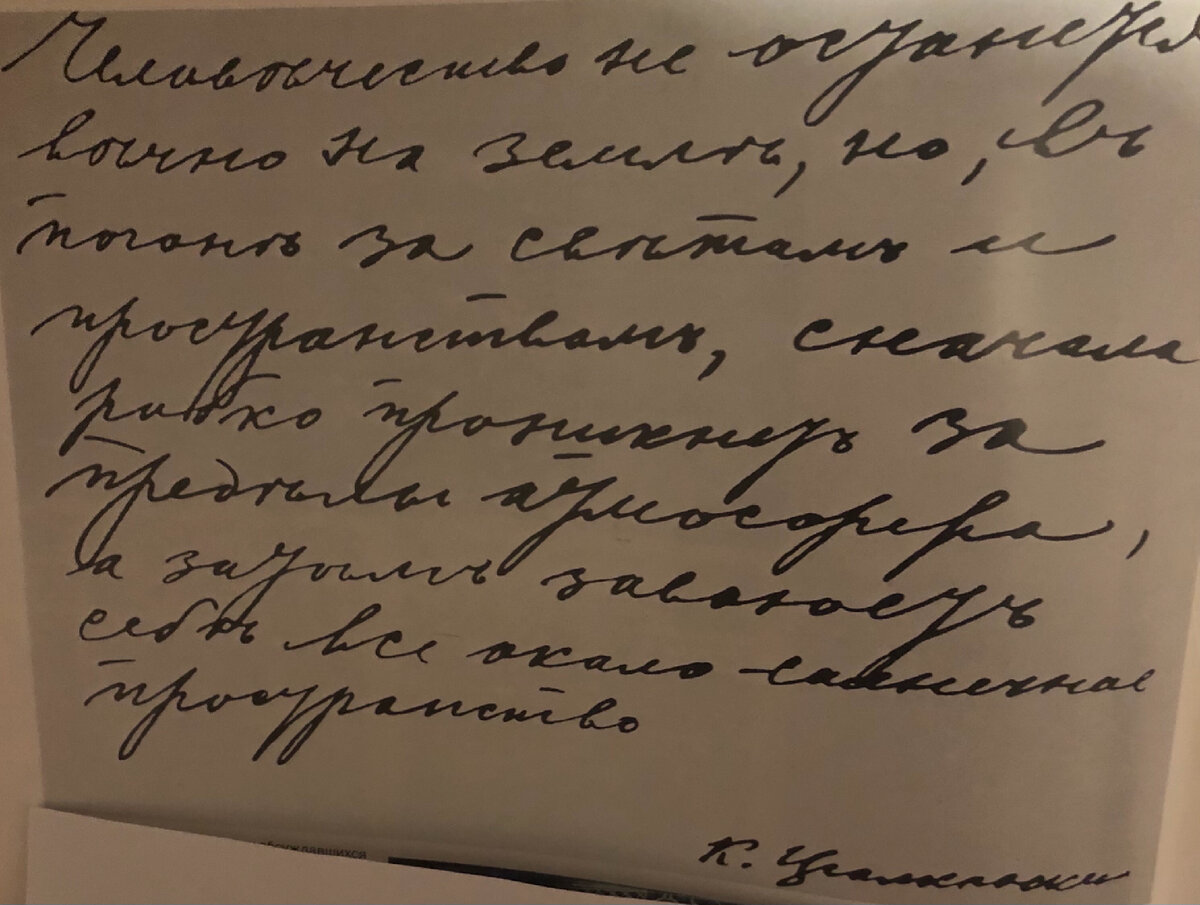 Человѣчество не останется
вѣчно на землѣ, но, въ
погонѣ за свѣтомъ и
пространствомъ, сначала
робко проникнетъ за
предѣлы атмосфера,
а затѣмъ завоюетъ
себѣ все около солнечное
пространство
К. Циолковский
обсуждавшихся